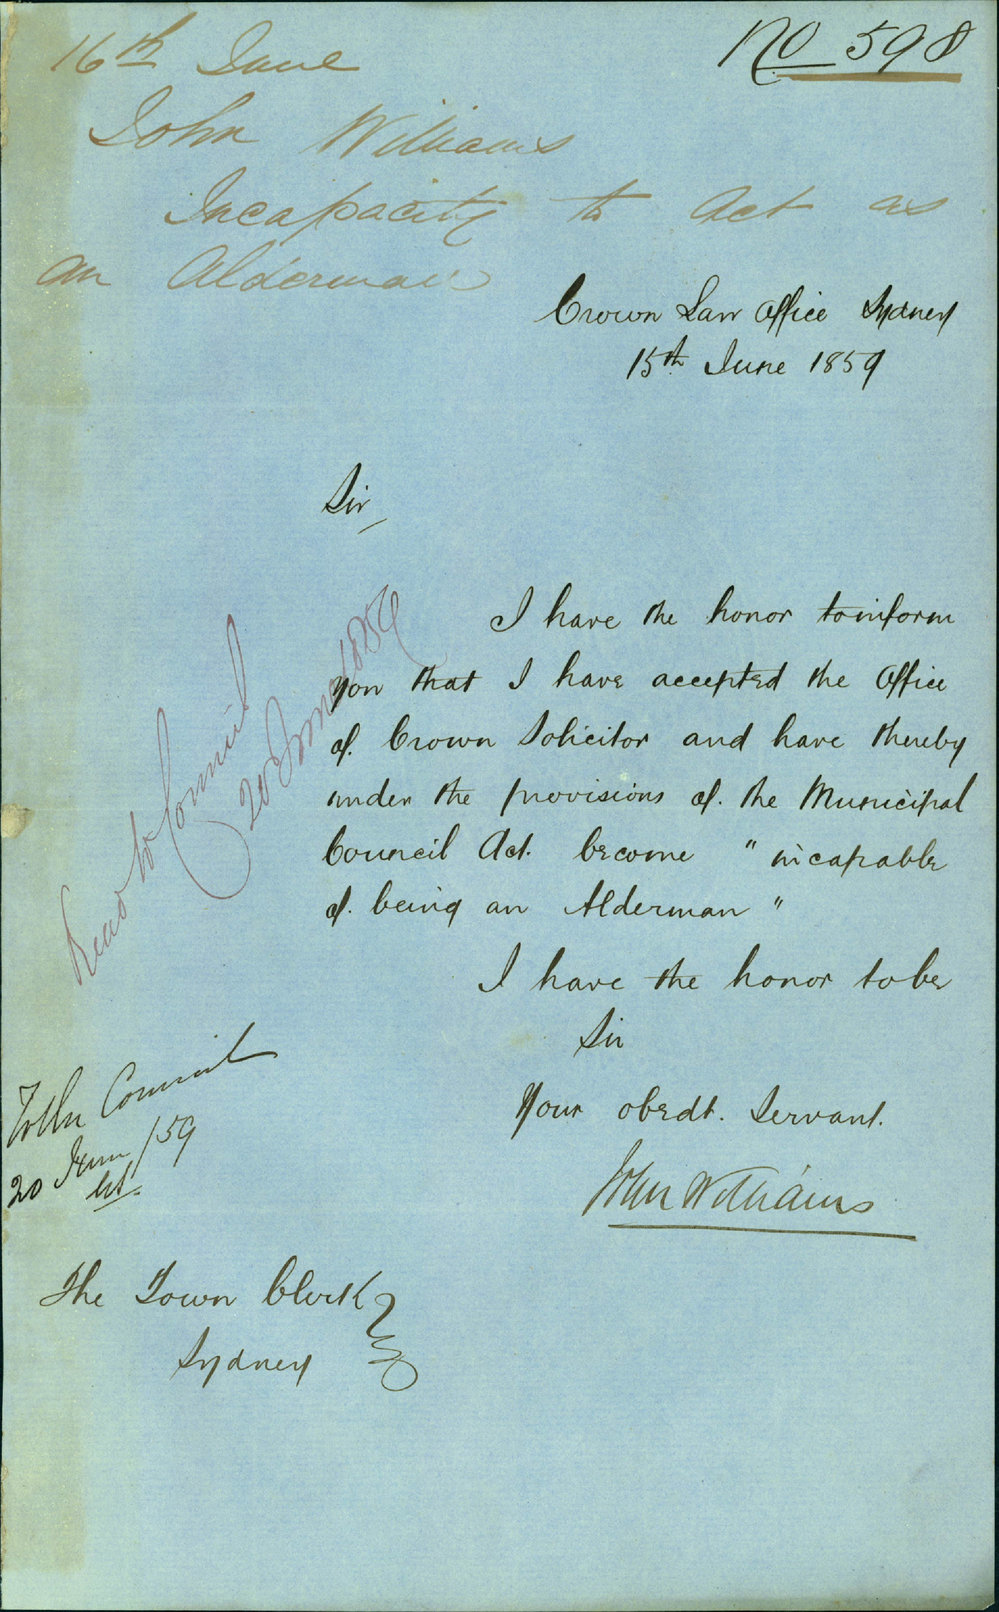 No 598
16th June
John Williams
Incapacity to Act as
an Alderman
Crown Law Office Sydney
15th June 1859
Sir,
I have the honor to inform
you that I have accepted the Office
of Crown Solicitor and have thereby
under the provisions of the Municipal
Council Act. become "incapable
of being an Alderman"
I have the honor to be
Sir
Your obedt. Servant.
John Williams
Read to Council
20 June 1859
To the Council
20 June /59
The Town Clerk
Sydney